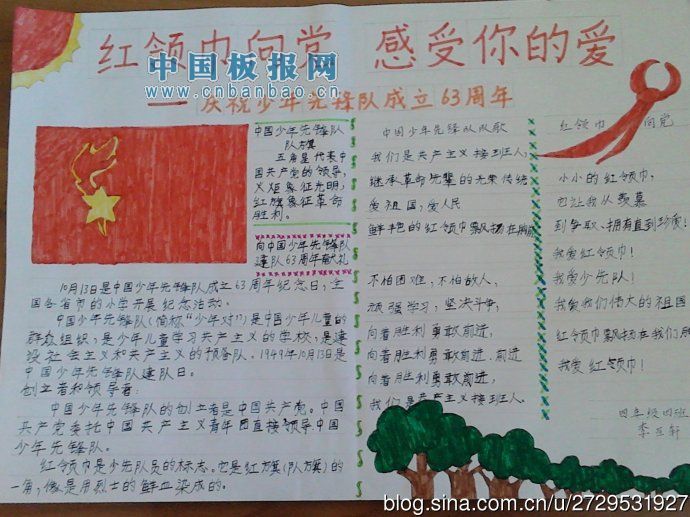 红领巾向党 感受你的爱
中国板报网
www.cnbanbao.cn
——庆祝少年先锋队成立63周年
中国少年先锋队
队旗
五角星代表中
国共产党的领导,
火炬象征光明,
红旗象征革命
胜利。
向中国少年先锋队
建队63周年献礼
10月13日是中国少年先锋队成立63周年纪念日,全
国各省市的小学开展纪念活动。
中国少年先锋队(简称"少年对")是中国少年儿童的
群众组织,是少年儿童学习共产主义的学校,是建
设社会主义和共产主义的预备队,1949年10月13日是
中国少年先锋队建队日。
创立者和领导者:
中国少年先锋队的创立者是中国共产党。中国
共产党委托中国共产主义青年团直接领导中国
少年先锋队。
红领巾是少先队员的标志。它是红旗(队旗)的
一角,像是用烈士的鲜血染成的。
中国少年先锋队队歌
我们是共产主义接班人,
继承革命先辈的光荣传统
爱祖国,爱人民
鲜艳的红领巾飘扬在胸前
不怕困难,不怕敌人,
顽强学习,坚决斗争,
向着胜利勇敢前进,
向着胜利勇敢前进,前进
向着胜利勇敢前进,
我们是共产主义接班人.
红领巾 向党
小小的红领巾,
它让我从羡慕
到争取、拥有直到珍爱!
我爱红领巾!
我爱少先队!
我爱我们伟大的祖国
红领巾飘扬在我们胸
我爱红领巾!
四年级四班
李 轩
blog.sina.com.cn/u/2729531927